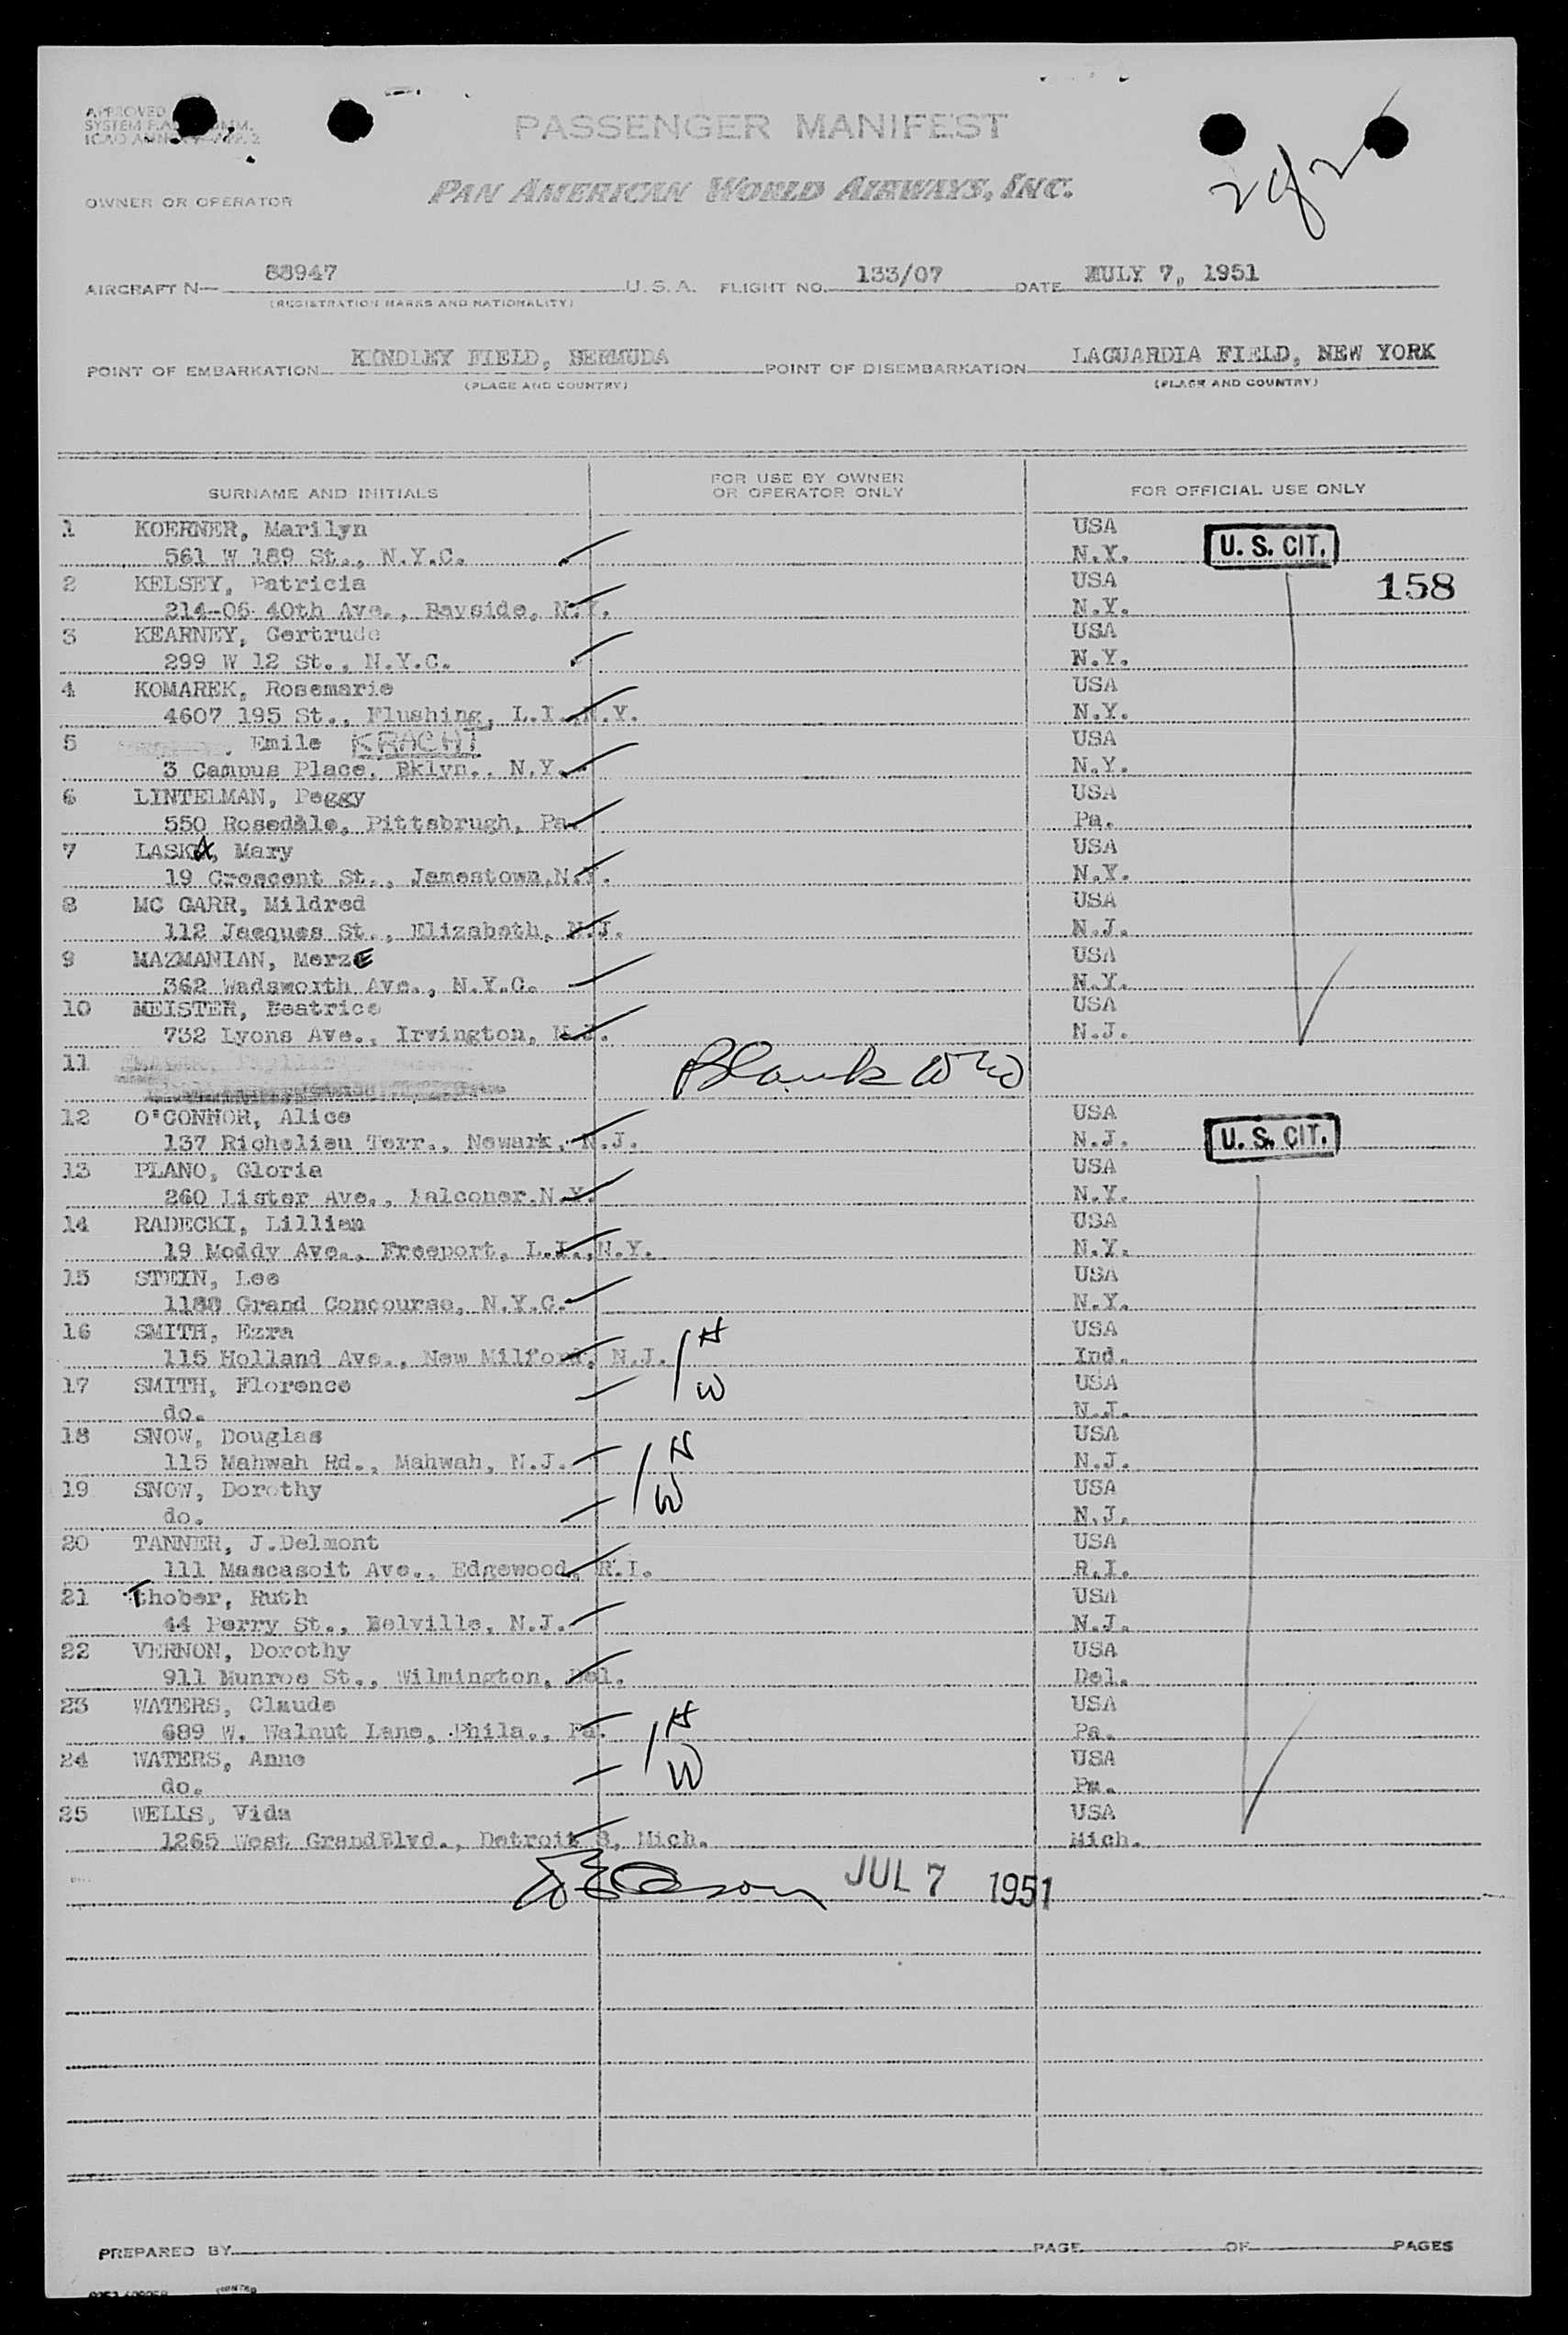 APPROVED
SYSTEM
ICAO
PASSENGER MANIFEST
2 of 2
OWNER OR OPERATOR
PAN AMERICAN WORLD AIRWAYS, INC.
AIRCRAFT N— 88947 U.S.A. FLIGHT NO. 133/07 DATE JULY 7, 1951
(REGISTRATION MARKS AND NATIONALITY)
POINT OF EMBARKATION KINDLEY FIELD, BERMUDA POINT OF DISEMBARKATION LAGUARDIA FIELD, NEW YORK
(PLACE AND COUNTRY) (PLACE AND COUNTRY)
SURNAME AND INITIALS FOR USE BY OWNER OR OPERATOR ONLY FOR OFFICIAL USE ONLY
1 KOERNER, Marilyn USA
561 W 189 St., N.Y.C. N.Y. U. S. CIT.
2 KELSEY, Patricia USA 158
214-06 40th Ave., Bayside, N.Y. N.Y.
3 KEARNEY, Gertrude USA
299 W 12 St., N.Y.C. N.Y.
4 KOMAREK, Rosemarie USA
4607 195 St., Flushing, L.I.,N.Y. N.Y.
5 , Emile KRACHT USA
3 Campus Place, Bklyn., N.Y. N.Y.
6 LINTELMAN, Peggy USA
550 Rosedale, Pittsbrugh, Pa. Pa.
7 LASKA, Mary USA
19 Crescent St., Jamestown,N.Y. N.Y.
8 MC GARR, Mildred USA
112 Jacques St., Elizabeth, N.J. N.J.
9 MAZMANIAN, Merze USA
362 Wadsworth Ave., N.Y.C. N.Y.
10 MEISTER, Beatrice USA
732 Lyons Ave., Irvington, N.J. N.J.
11 Blank
12 O'CONNOR, Alice USA
137 Richelieu Terr., Newark, N.J. N.J. U. S. CIT.
13 PLANO, Gloria USA
260 Lister Ave., Falconer,N.Y. N.Y.
14 RADECKI, Lillian USA
19 Moddy Ave., Freeport, L.I.,N.Y. N.Y.
15 STEIN, Lee USA
1188 Grand Concourse, N.Y.C. N.Y.
16 SMITH, Ezra H USA
115 Holland Ave., New Milford, N.J. Ind.
17 SMITH, Florence W USA
do. N.J.
18 SNOW, Douglas H USA
115 Mahwah Rd., Mahwah, N.J. N.J.
19 SNOW, Dorothy W USA
do. N.J.
20 TANNER, J.Delmont USA
111 Mascasoit Ave., Edgewood, R.I. R.I.
21 Thober, Ruth USA
44 Perry St., Belville, N.J. N.J.
22 VERNON, Dorothy USA
911 Munroe St., Wilmington, Del. Del.
23 WATERS, Claude H USA
689 W. Walnut Lane, Phila., Pa. Pa.
24 WATERS, Anne W USA
do. Pa.
25 WELLS, Vida USA
1265 West GrandBlvd., Detroit 8, Mich. Mich.
JUL 7 1951
PREPARED BY PAGE OF PAGES